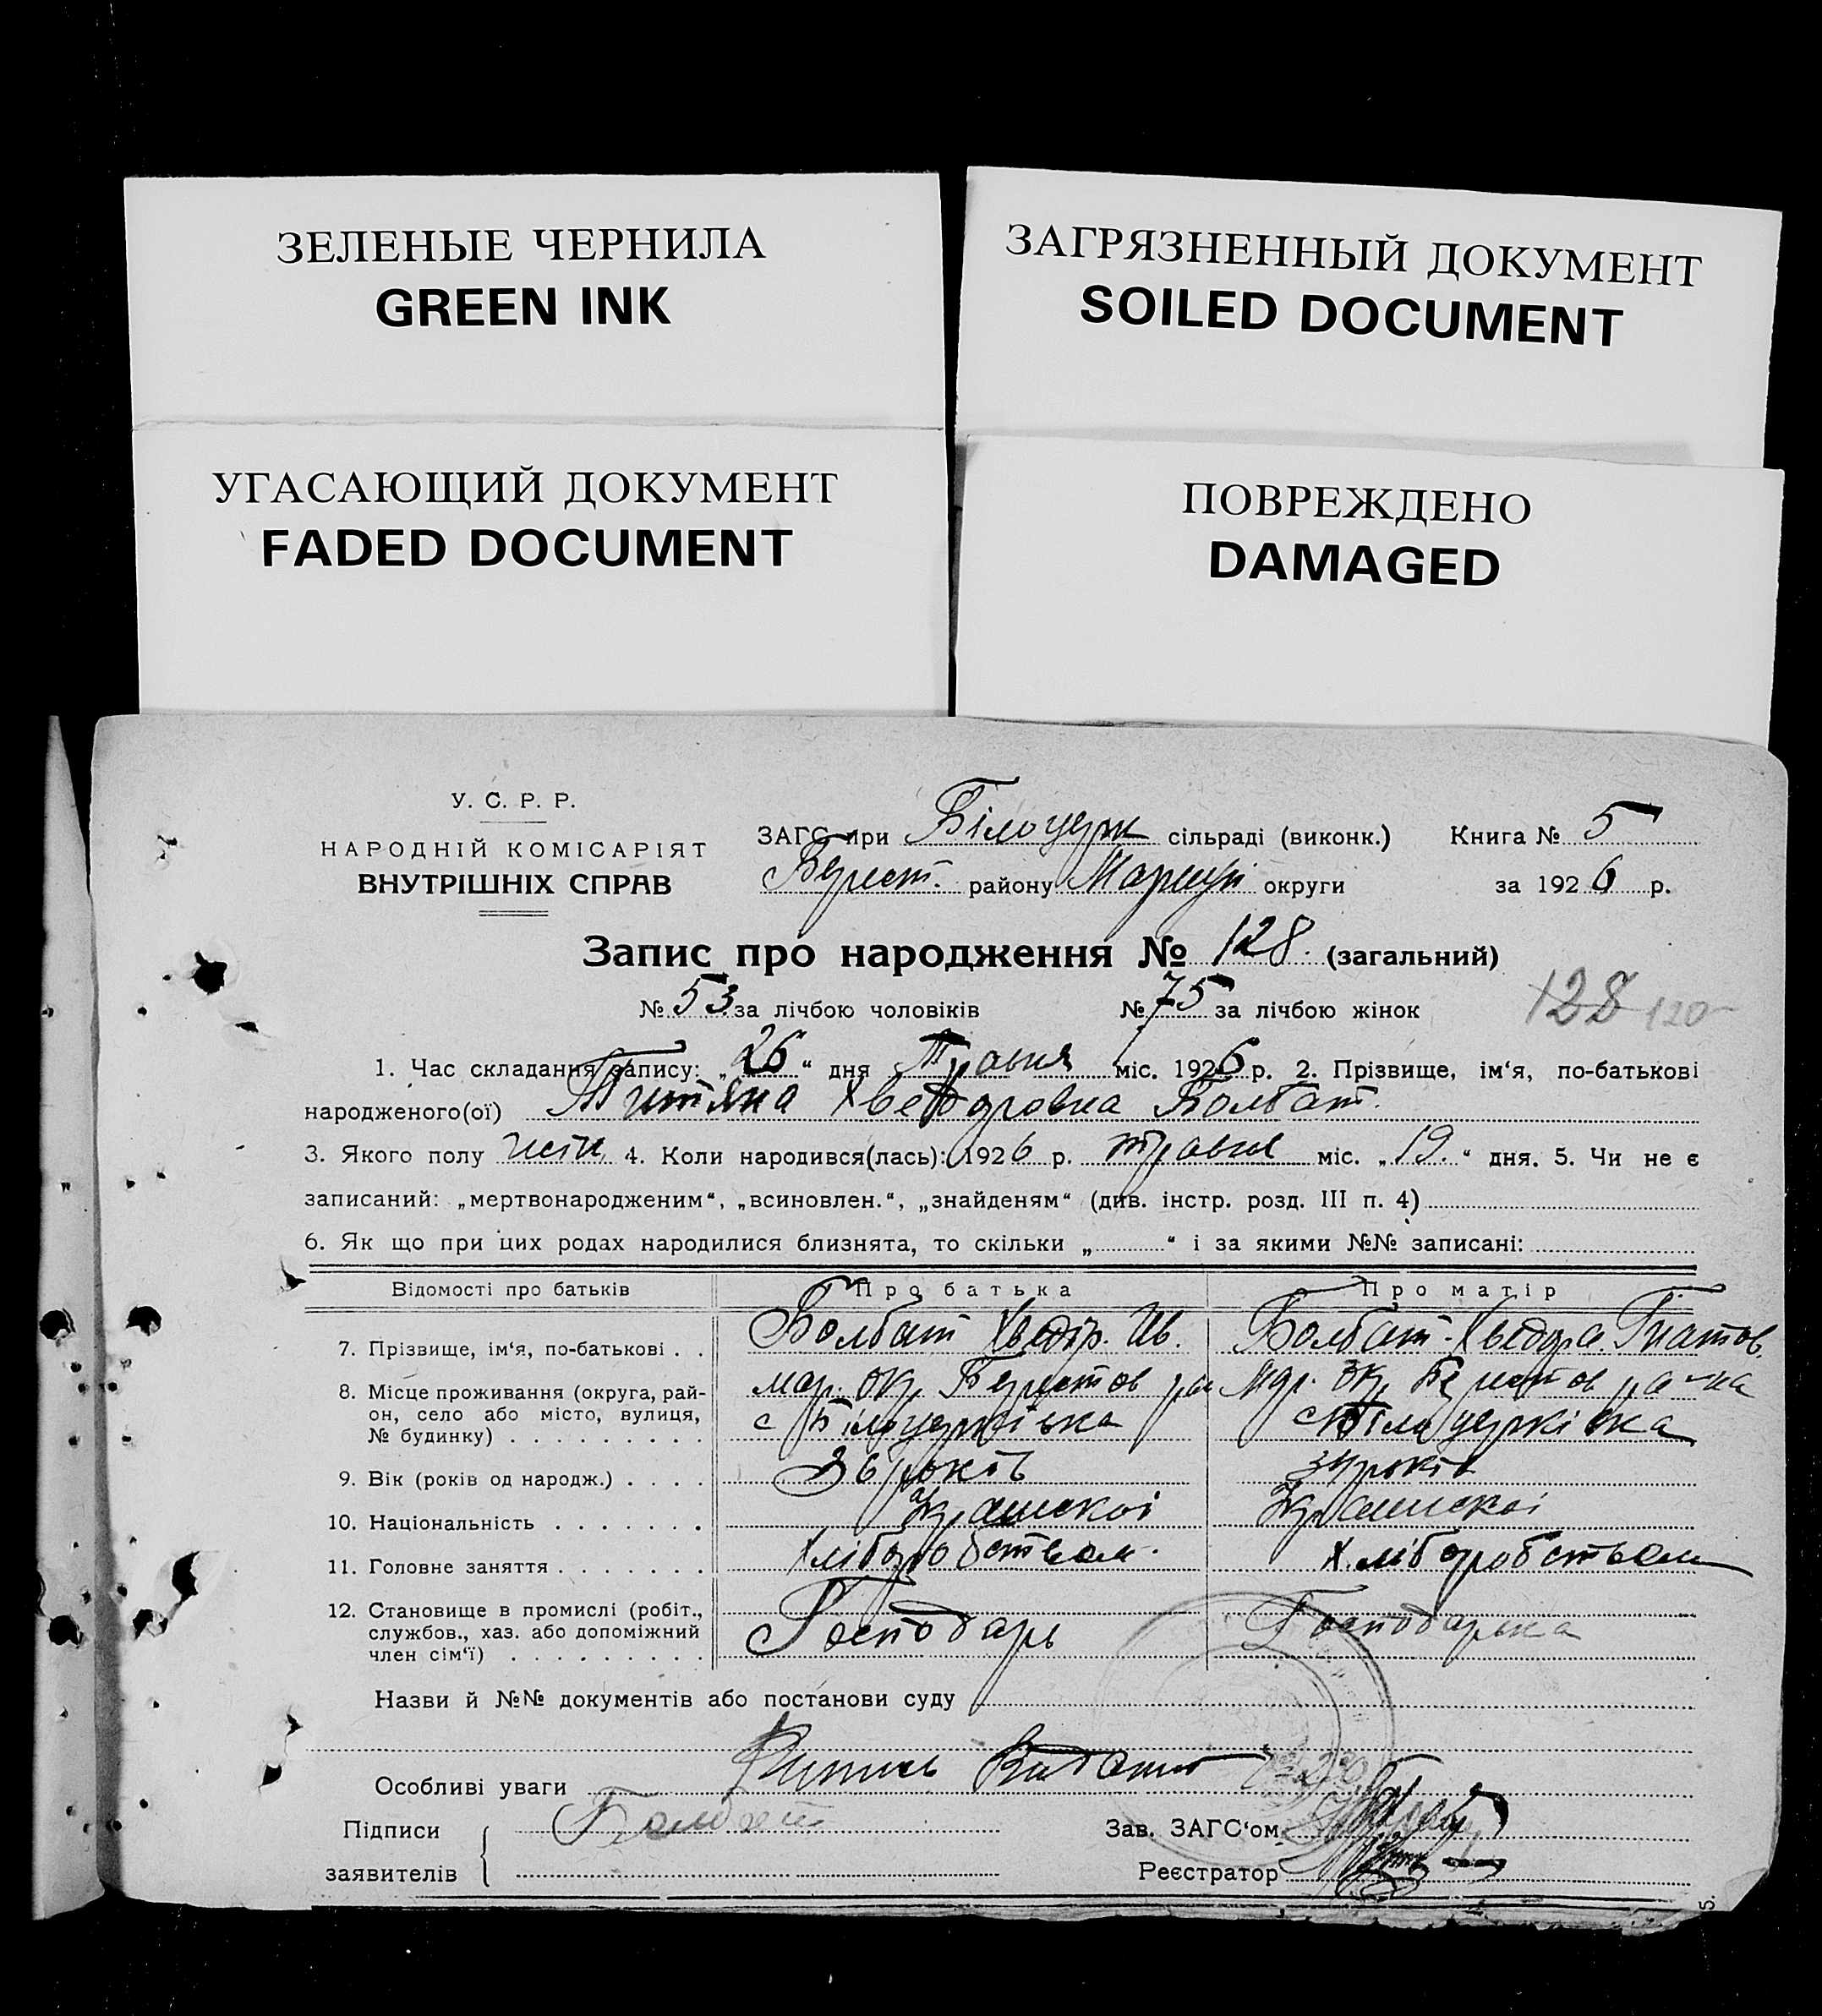 ЗЕЛЕНЫЕ ЧЕРНИЛА
GREEN INK
ЗАГРЯЗНЕННЫЙ ДОКУМЕНТ
SOILED DOCUMENT
УГАСАЮЩИЙ ДОКУМЕНТ
FADED DOCUMENT
ПОВРЕЖДЕНО
DAMAGED
У. С. Р. Р.
НАРОДНІЙ КОМІСАРІЯТ
ВНУТРІШНІХ СПРАВ
ЗАГС при Білоцерк сільраді (виконк.) Книга № 5
Берест. району округи за 1926 р.
Запис про народження № 128. (загальний)
№ 53 за лічбою чоловіків № 75 за лічбою жінок 128 120
1. Час складання запису: „26“ дня Травня міс. 1926 р. 2. Прізвище, ім‘я, по-батькові
народженого(ої) Титяна Хведоровна Болбат.
3. Якого полу 4. Коли народився(лась): 1926 р. травня міс. „19.“ дня. 5. Чи не є
записаний: „мертвонародженим“, „всиновлен.“, „знайденям“ (див. інстр. розд. III п. 4)
6. Як що при цих родах народилися близнята, то скільки „ “ і за якими №№ записані:
Відомості про батьків Про батька Про матір
7. Прізвище, ім‘я, по-батькові . . Болбат Хведір. Ив. Болбат Хведора. Гнатов.
8. Місце проживання (округа, рай- мар. окр. Берестов рай Мар. окр. Берестов ра-на
он, село або місто, вулиця, с Білоцерківка с Білоцерківка
№ будинку) . . . . . . . . .
9. Вік (років од народж.) . . . . 36 років років
10. Національність . . . . . . . Украінскоі Украінскоі
11. Головне заняття . . . . . . . Хліборобством. Хліборобством
12. Становище в промислі (робіт.,
службов., хаз. або допоміжний Господарь Господарька
член сім‘ї) . . . . . . . . .
Назви й №№ документів або постанови суду
Особливі уваги
Підписи Болбат Зав. ЗАГС‘ом
заявителів Реєстратор
5.